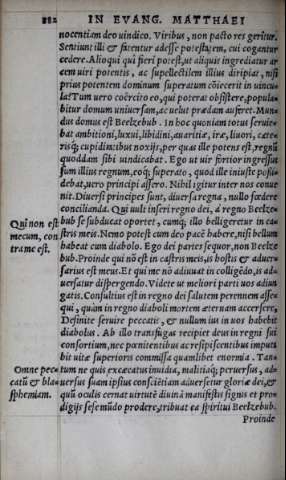 882 IN EVANG. MATTHAEI
nocentiam deo uindico. Viribus, non pacto res geritur.
Sentiunt illi & fatentur adesse potestatem, cui cogantur
cedere. Alioqui qui fieri potest, ut aliquis ingrediatur æ
dem uiri potentis, ac supellectilem illius diripiat, nisi
prius potentem dominum superatum cōiecerit in uincu=
la? Tum uero coërcito eo, qui poterat obsistere, popula=
bitur domum uniuersam, ac uelut prædam auferet. Mun=
dus domus est Beelzebub. In hoc quoniam totus seruie=
bat ambitioni, luxui, libidini, auaritiæ, iræ, liuori, cæte=
risq; cupiditatibus noxijs, per quas ille potens est, regnū
quoddam sibi uindicabat. Ego ut uir fortior ingressus
sum illius regnum, eoq; superato, quod ille iniuste possi=
debat, uero principi assero. Nihil igitur inter nos conue
nit. Diuersi principes sunt, diuersa regna, nullo fœdere
concilianda. Qui uult inseri regno dei, à regno Beelze=
Qui non est bub se subducat oportet, cumq; illo belligeretur in ca=
mecum, con stris meis. Nemo potest cum deo pacē habere, nisi bellum
tra me est. habeat cum diabolo. Ego dei partes sequor, non Beelze
bub. Proinde qui nō est in castris meis, is hostis & aduer=
sarius est meus. Et qui me nō adiuuat in colligēdo, is ad=
uersatur dispergendo. Videte ut meliori parti uos adiun
gatis. Consultius est in regno dei salutem perennem asse
qui, quàm in regno diaboli mortem æternam accersere.
Desinite seruire peccatis, & nullum ius in uos habebit
diabolus. Ab illo transfugas recipiet deus in regni sui
consortium, nec pœnitentibus ac resipiscentibus imputa
bit uitæ superioris commissa quamlibet enormia. Tan=
Omne pec= tum ne quis excæcatus inuidia, malitiaq; peruersus, ad=
catū & bla= uersus suam ipsius consciētiam aduersetur gloriæ dei, &
sphemiam. quū oculis cernat uirtutē diuinā manifestis signis et pro=
digijs sese mūdo prodere, tribuat ea spiritui Beelzebub.
Proinde